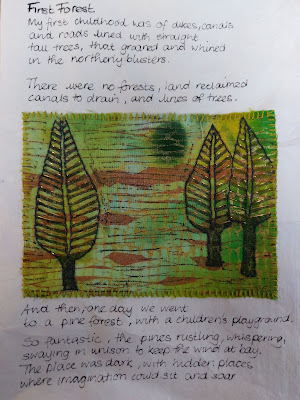 First Forest
My first childhood was of dikes, canals
and roads lined with straight
tall trees, that groaned and whined
in the northerly blusters.
There were no forests, land reclaimed
canals to drain, and lines of trees.
And then, one day we went
to a pine forest, with a children's playground.
So fantastic, the pines rustling, whispering,
swaying in unison to keep the wind at bay.
The place was dark, with hidden places
where imagination could sit and soar